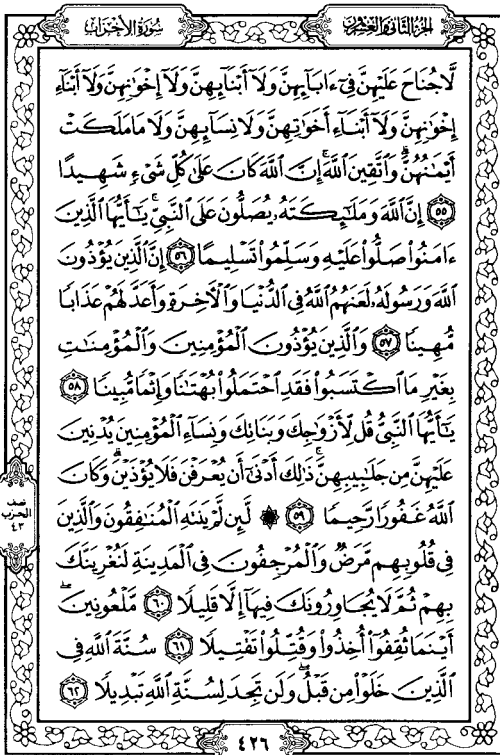 سُورَةُ الأَحْزَاب
الجُزْءُ الثَّانِي وَالعِشْرُون
لَّا جُنَاحَ عَلَيْهِنَّ فِىٓ ءَابَآئِهِنَّ وَلَآ أَبْنَآئِهِنَّ وَلَآ إِخْوَٰنِهِنَّ وَلَآ أَبْنَآءِ
إِخْوَٰنِهِنَّ وَلَآ أَبْنَآءِ أَخَوَٰتِهِنَّ وَلَا نِسَآئِهِنَّ وَلَا مَا مَلَكَتْ
أَيْمَٰنُهُنَّ ۗ وَٱتَّقِينَ ٱللَّهَ ۚ إِنَّ ٱللَّهَ كَانَ عَلَىٰ كُلِّ شَىْءٍ شَهِيدًا
٥٥ إِنَّ ٱللَّهَ وَمَلَٰٓئِكَتَهُۥ يُصَلُّونَ عَلَى ٱلنَّبِىِّ ۚ يَٰٓأَيُّهَا ٱلَّذِينَ
ءَامَنُوا۟ صَلُّوا۟ عَلَيْهِ وَسَلِّمُوا۟ تَسْلِيمًا ٥٦ إِنَّ ٱلَّذِينَ يُؤْذُونَ
ٱللَّهَ وَرَسُولَهُۥ لَعَنَهُمُ ٱللَّهُ فِى ٱلدُّنْيَا وَٱلْءَاخِرَةِ وَأَعَدَّ لَهُمْ عَذَابًا
مُّهِينًا ٥٧ وَٱلَّذِينَ يُؤْذُونَ ٱلْمُؤْمِنِينَ وَٱلْمُؤْمِنَٰتِ
بِغَيْرِ مَا ٱكْتَسَبُوا۟ فَقَدِ ٱحْتَمَلُوا۟ بُهْتَٰنًا وَإِثْمًا مُّبِينًا ٥٨
يَٰٓأَيُّهَا ٱلنَّبِىُّ قُل لِّأَزْوَٰجِكَ وَبَنَاتِكَ وَنِسَآءِ ٱلْمُؤْمِنِينَ يُدْنِينَ
عَلَيْهِنَّ مِن جَلَٰبِيبِهِنَّ ۚ ذَٰلِكَ أَدْنَىٰٓ أَن يُعْرَفْنَ فَلَا يُؤْذَيْنَ ۗ وَكَانَ
ٱللَّهُ غَفُورًا رَّحِيمًا ٥٩ ۞ لَّئِن لَّمْ يَنتَهِ ٱلْمُنَٰفِقُونَ وَٱلَّذِينَ
فِى قُلُوبِهِم مَّرَضٌ وَٱلْمُرْجِفُونَ فِى ٱلْمَدِينَةِ لَنُغْرِيَنَّكَ
بِهِمْ ثُمَّ لَا يُجَاوِرُونَكَ فِيهَآ إِلَّا قَلِيلًا ٦٠ مَّلْعُونِينَ ۖ
أَيْنَمَا ثُقِفُوٓا۟ أُخِذُوا۟ وَقُتِّلُوا۟ تَقْتِيلًا ٦١ سُنَّةَ ٱللَّهِ فِى
ٱلَّذِينَ خَلَوْا۟ مِن قَبْلُ ۖ وَلَن تَجِدَ لِسُنَّةِ ٱللَّهِ تَبْدِيلًا ٦٢
نصف
الحزب
٤٣
٤٢٦